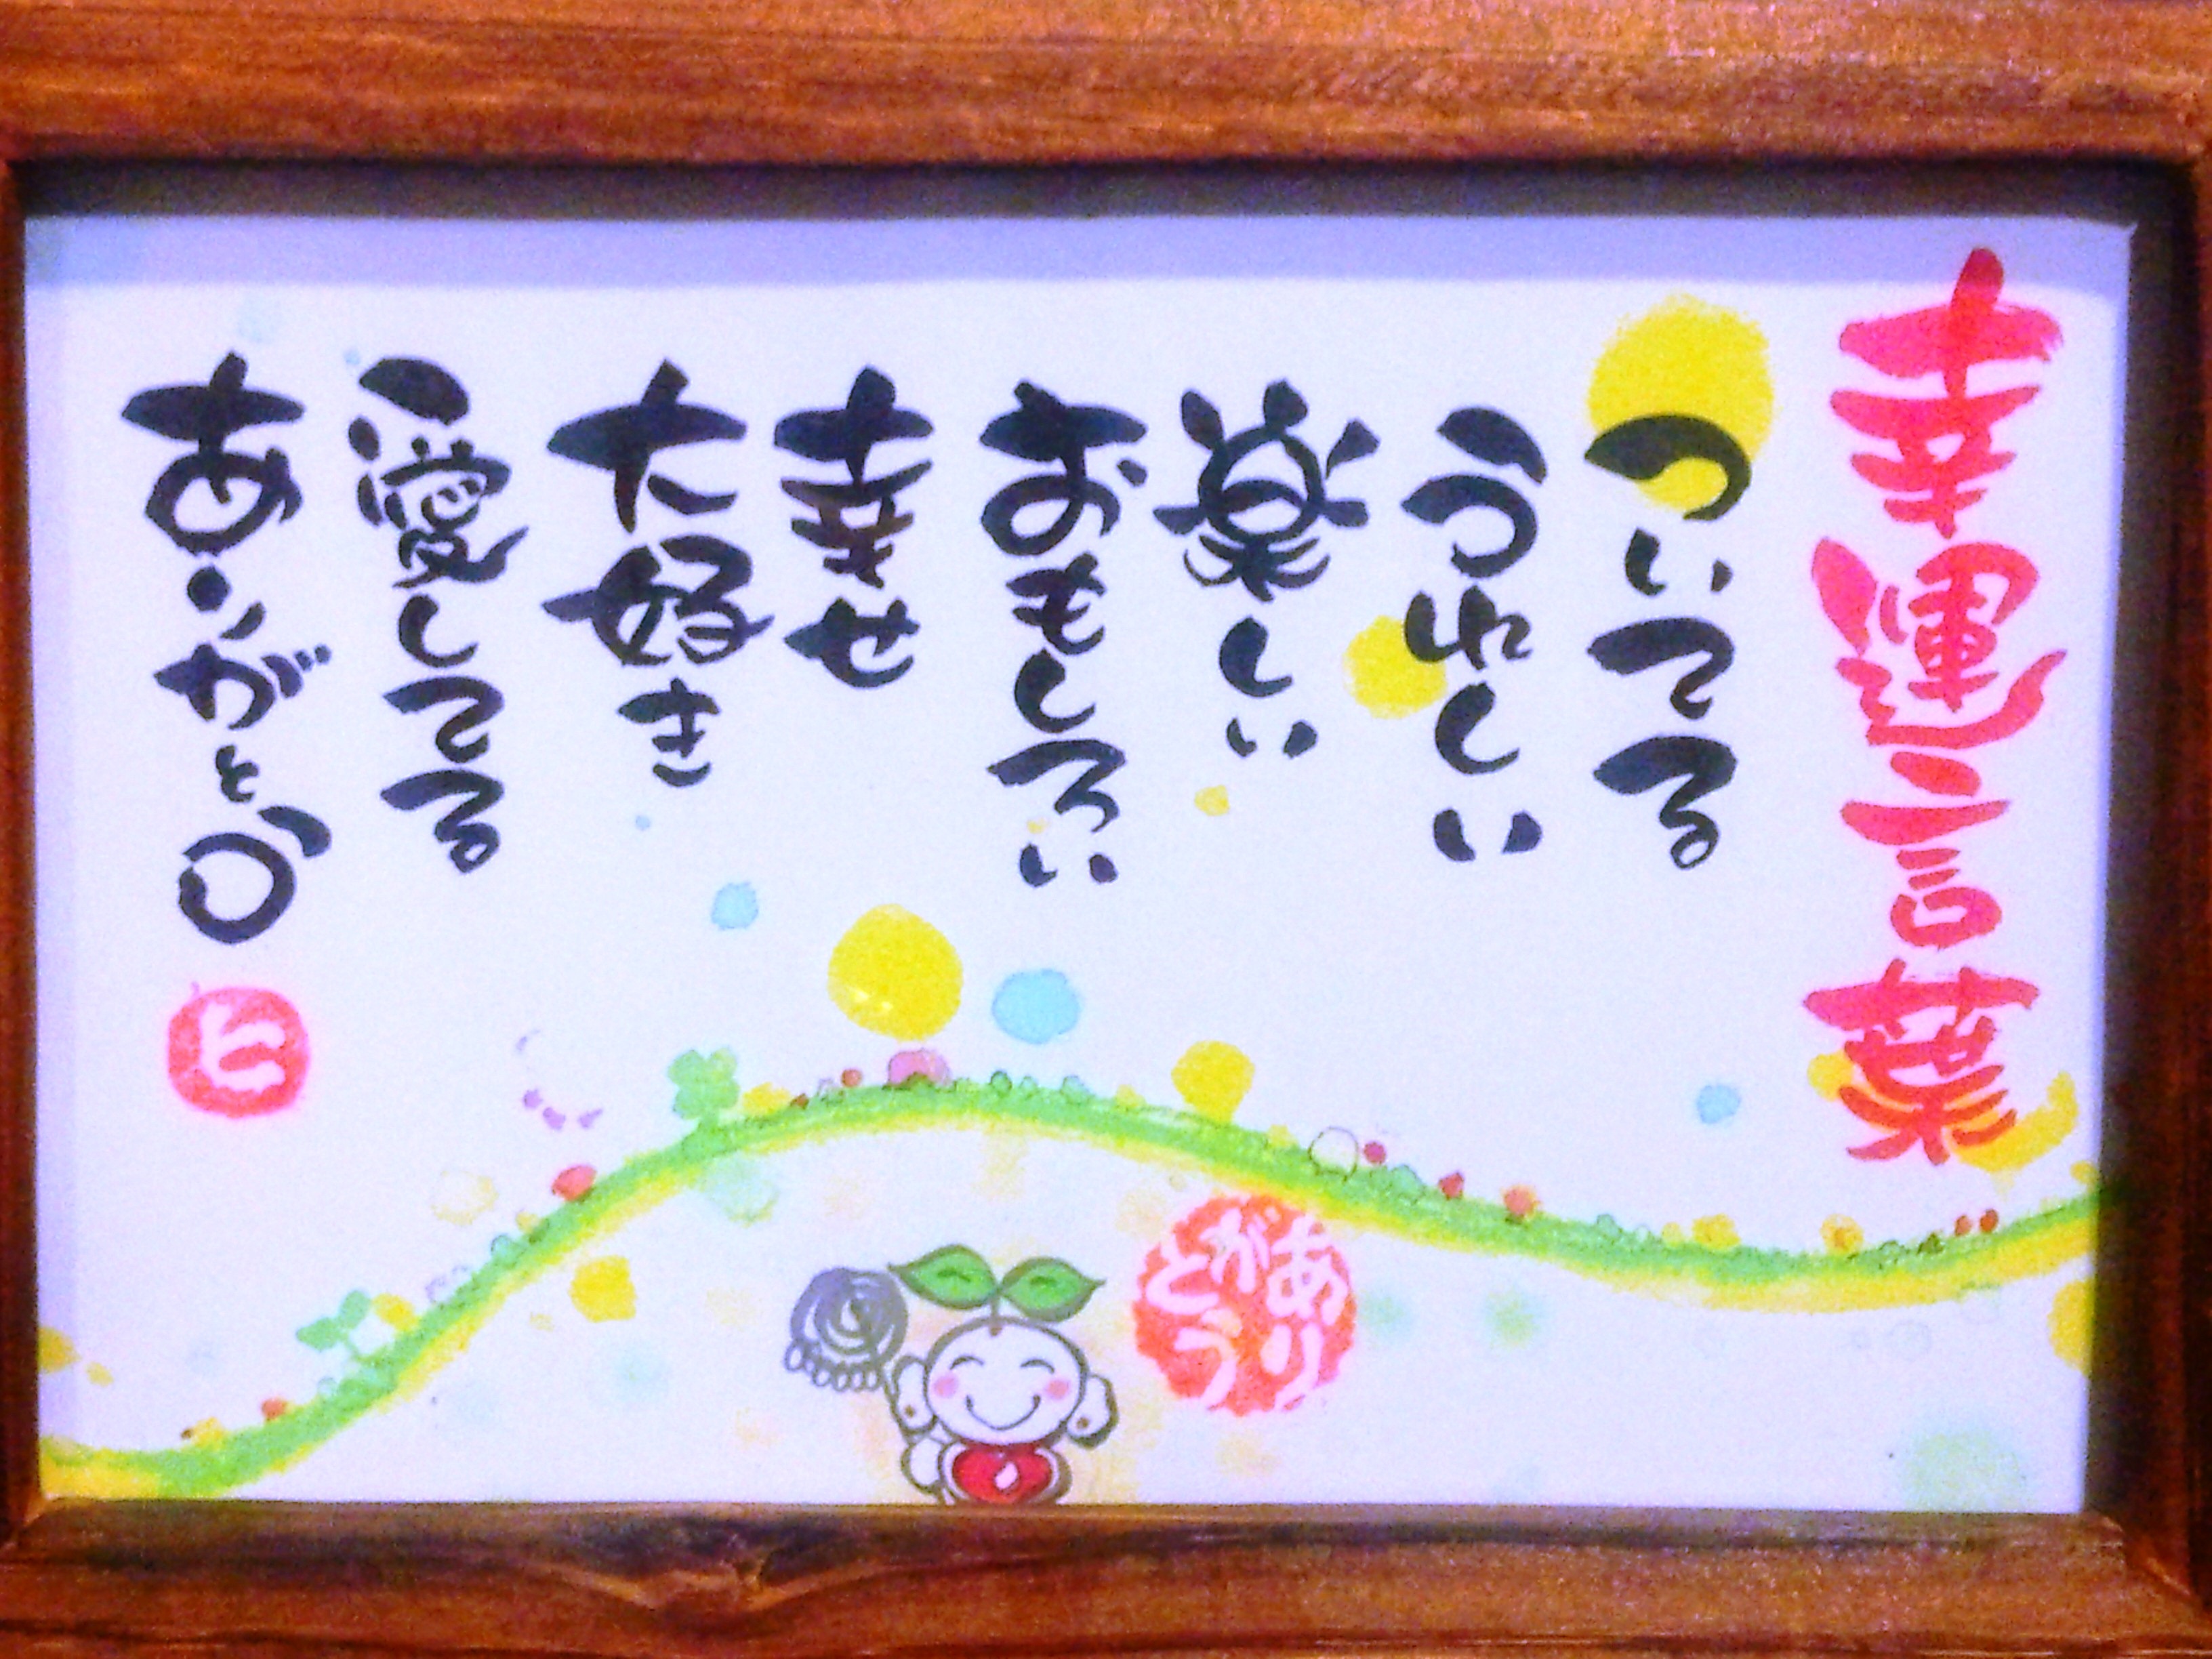 幸運言葉
ついてる
うれしい
楽しい
おもしろい
幸せ
大好き
愛してる
ありがとう
ヒ
ありがとう